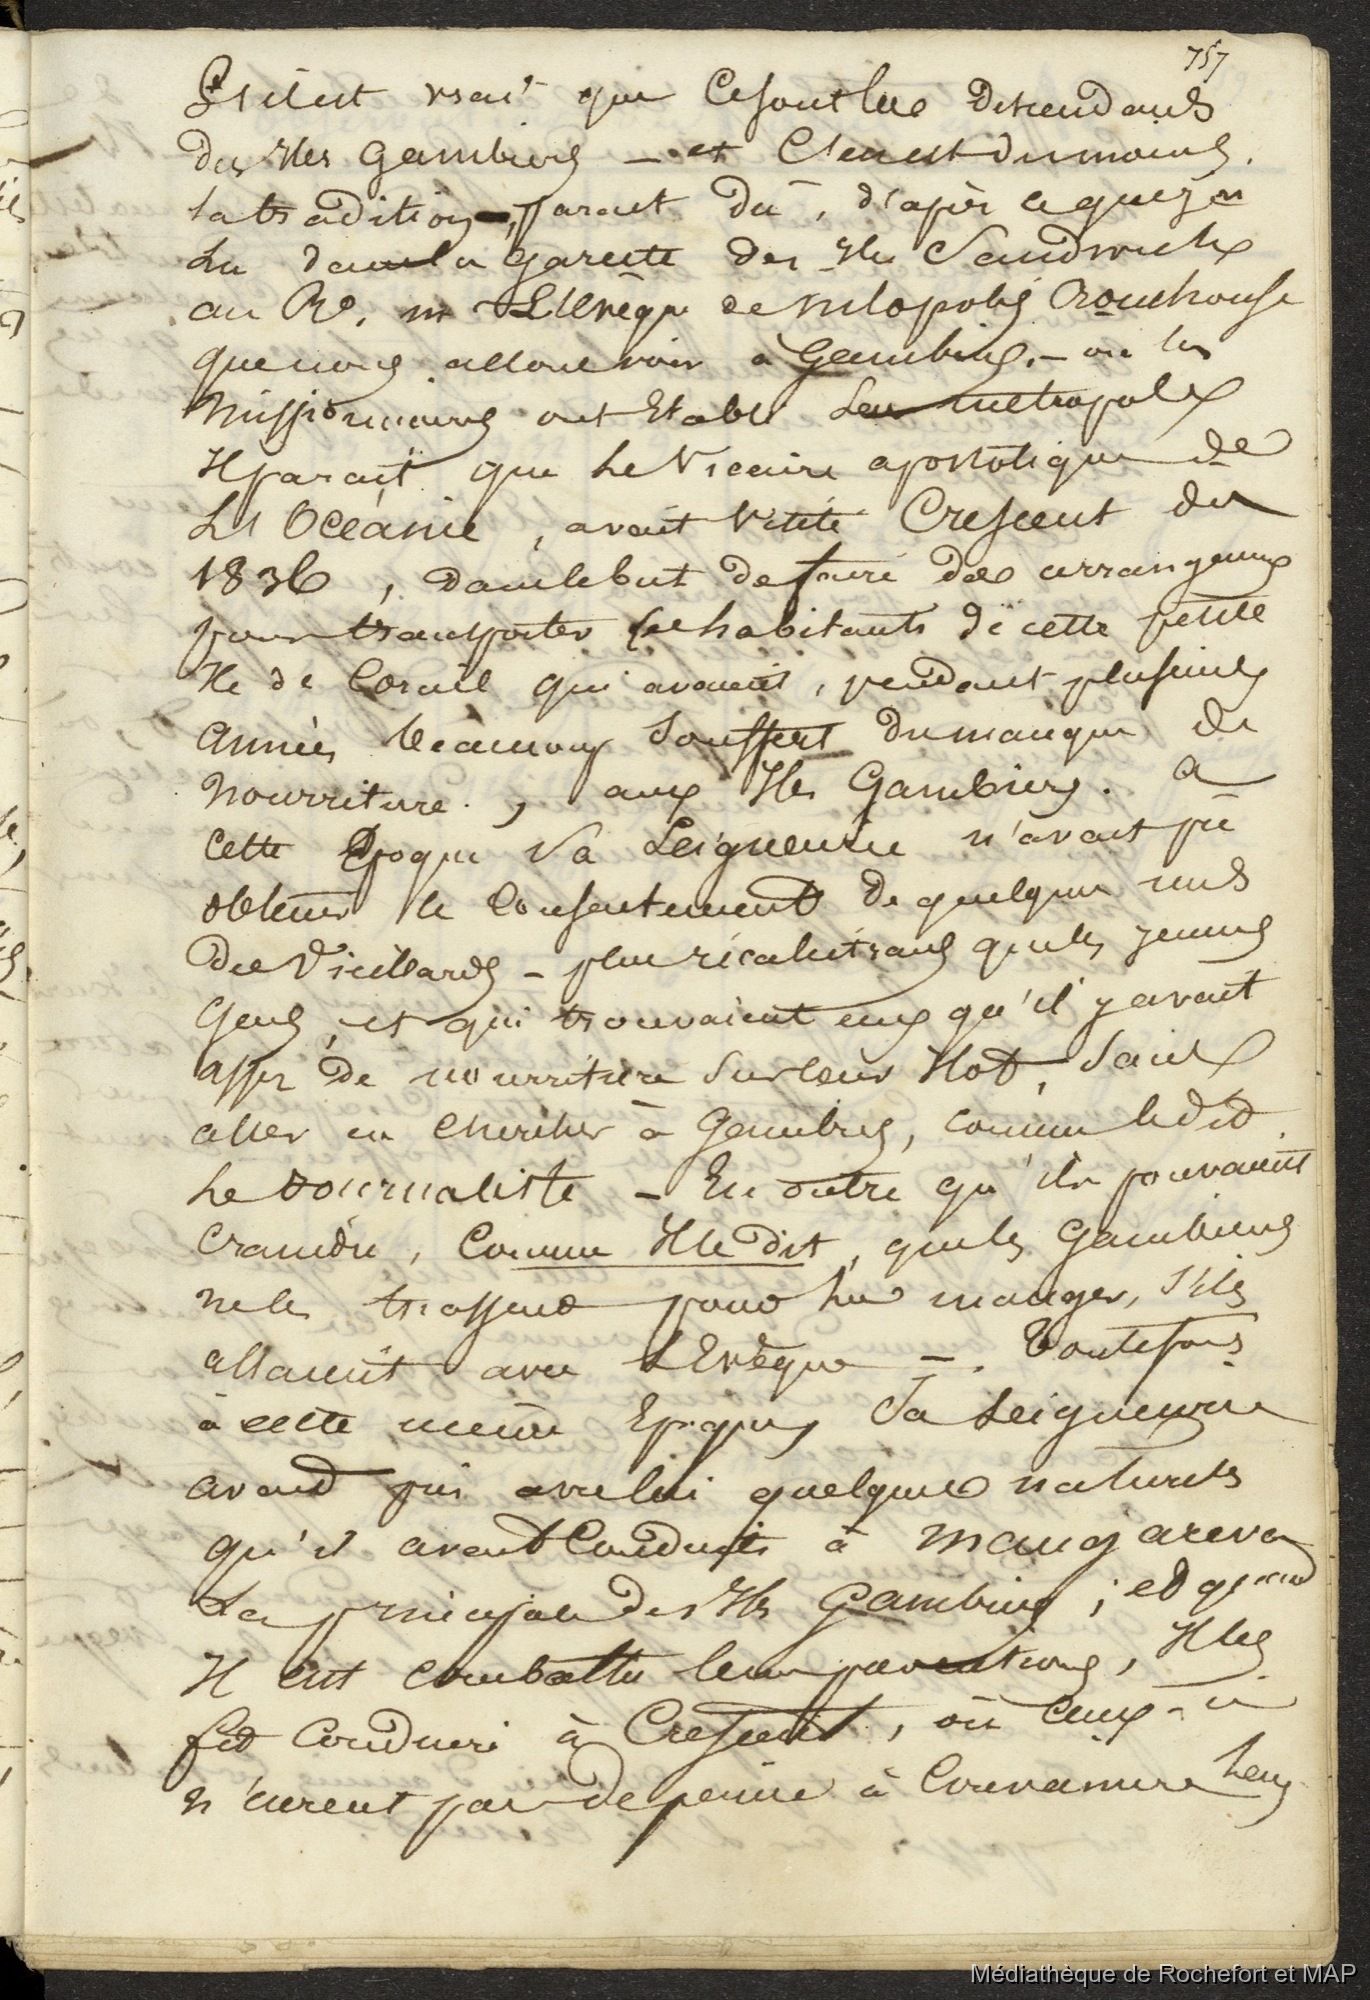 757
S'il est vrai que ce sont les descendants
des Iles Gambiers – et c'en est du moins
la tradition, parait du, d'après ce que j'en
Lu dans la gazette des Iles Sandwich
au Rd. m L'Evêque de Nilopolis Rouchouse
que nous allons voir à Gambiers. – où les
Missionnaires ont Etabli Leur métropole
Il parait que Le Vicaire apostolique de
L'Océanie, avait visité Crescent dès
1836, dans le but de faire des arrangemens
pour transporter les habitants de cette petite
Ile de Corail qui avaient, pendant plusieurs
années beaucoup Souffert du manque de
Nourriture, aux Iles Gambiers. a
cette Epoque Sa Seigneurie n'avait pu
obtenir le Consentement de quelques uns
des Vieillards – plus récalcitrans que les jeunes
Gens, et qui trouvaient eux qu'il y avait
assez de nourriture Sur leur Ilot, Sans
aller en chercher à Gambiers, comme le dit
Le Journaliste – En outre qu'ils pouvaient
Craindre, Comme Il le dit, que les Gambiens
ne les traffent pour Les manger, s'ils
allaient avec L'Evêque –. Toutefois
à cette même Epoque, Sa Seigneurie
avait pris avec lui quelques naturels
qu'il avait Conduits à Mangareva
La principale des Iles Gambiers ; et quand
Il eut combattu leurs préventions, Il les
fit Conduire à Crescent, où ceux-ci
n'eurent pas de peine à Convaincre Leurs
Médiathèque de Rochefort et MAP